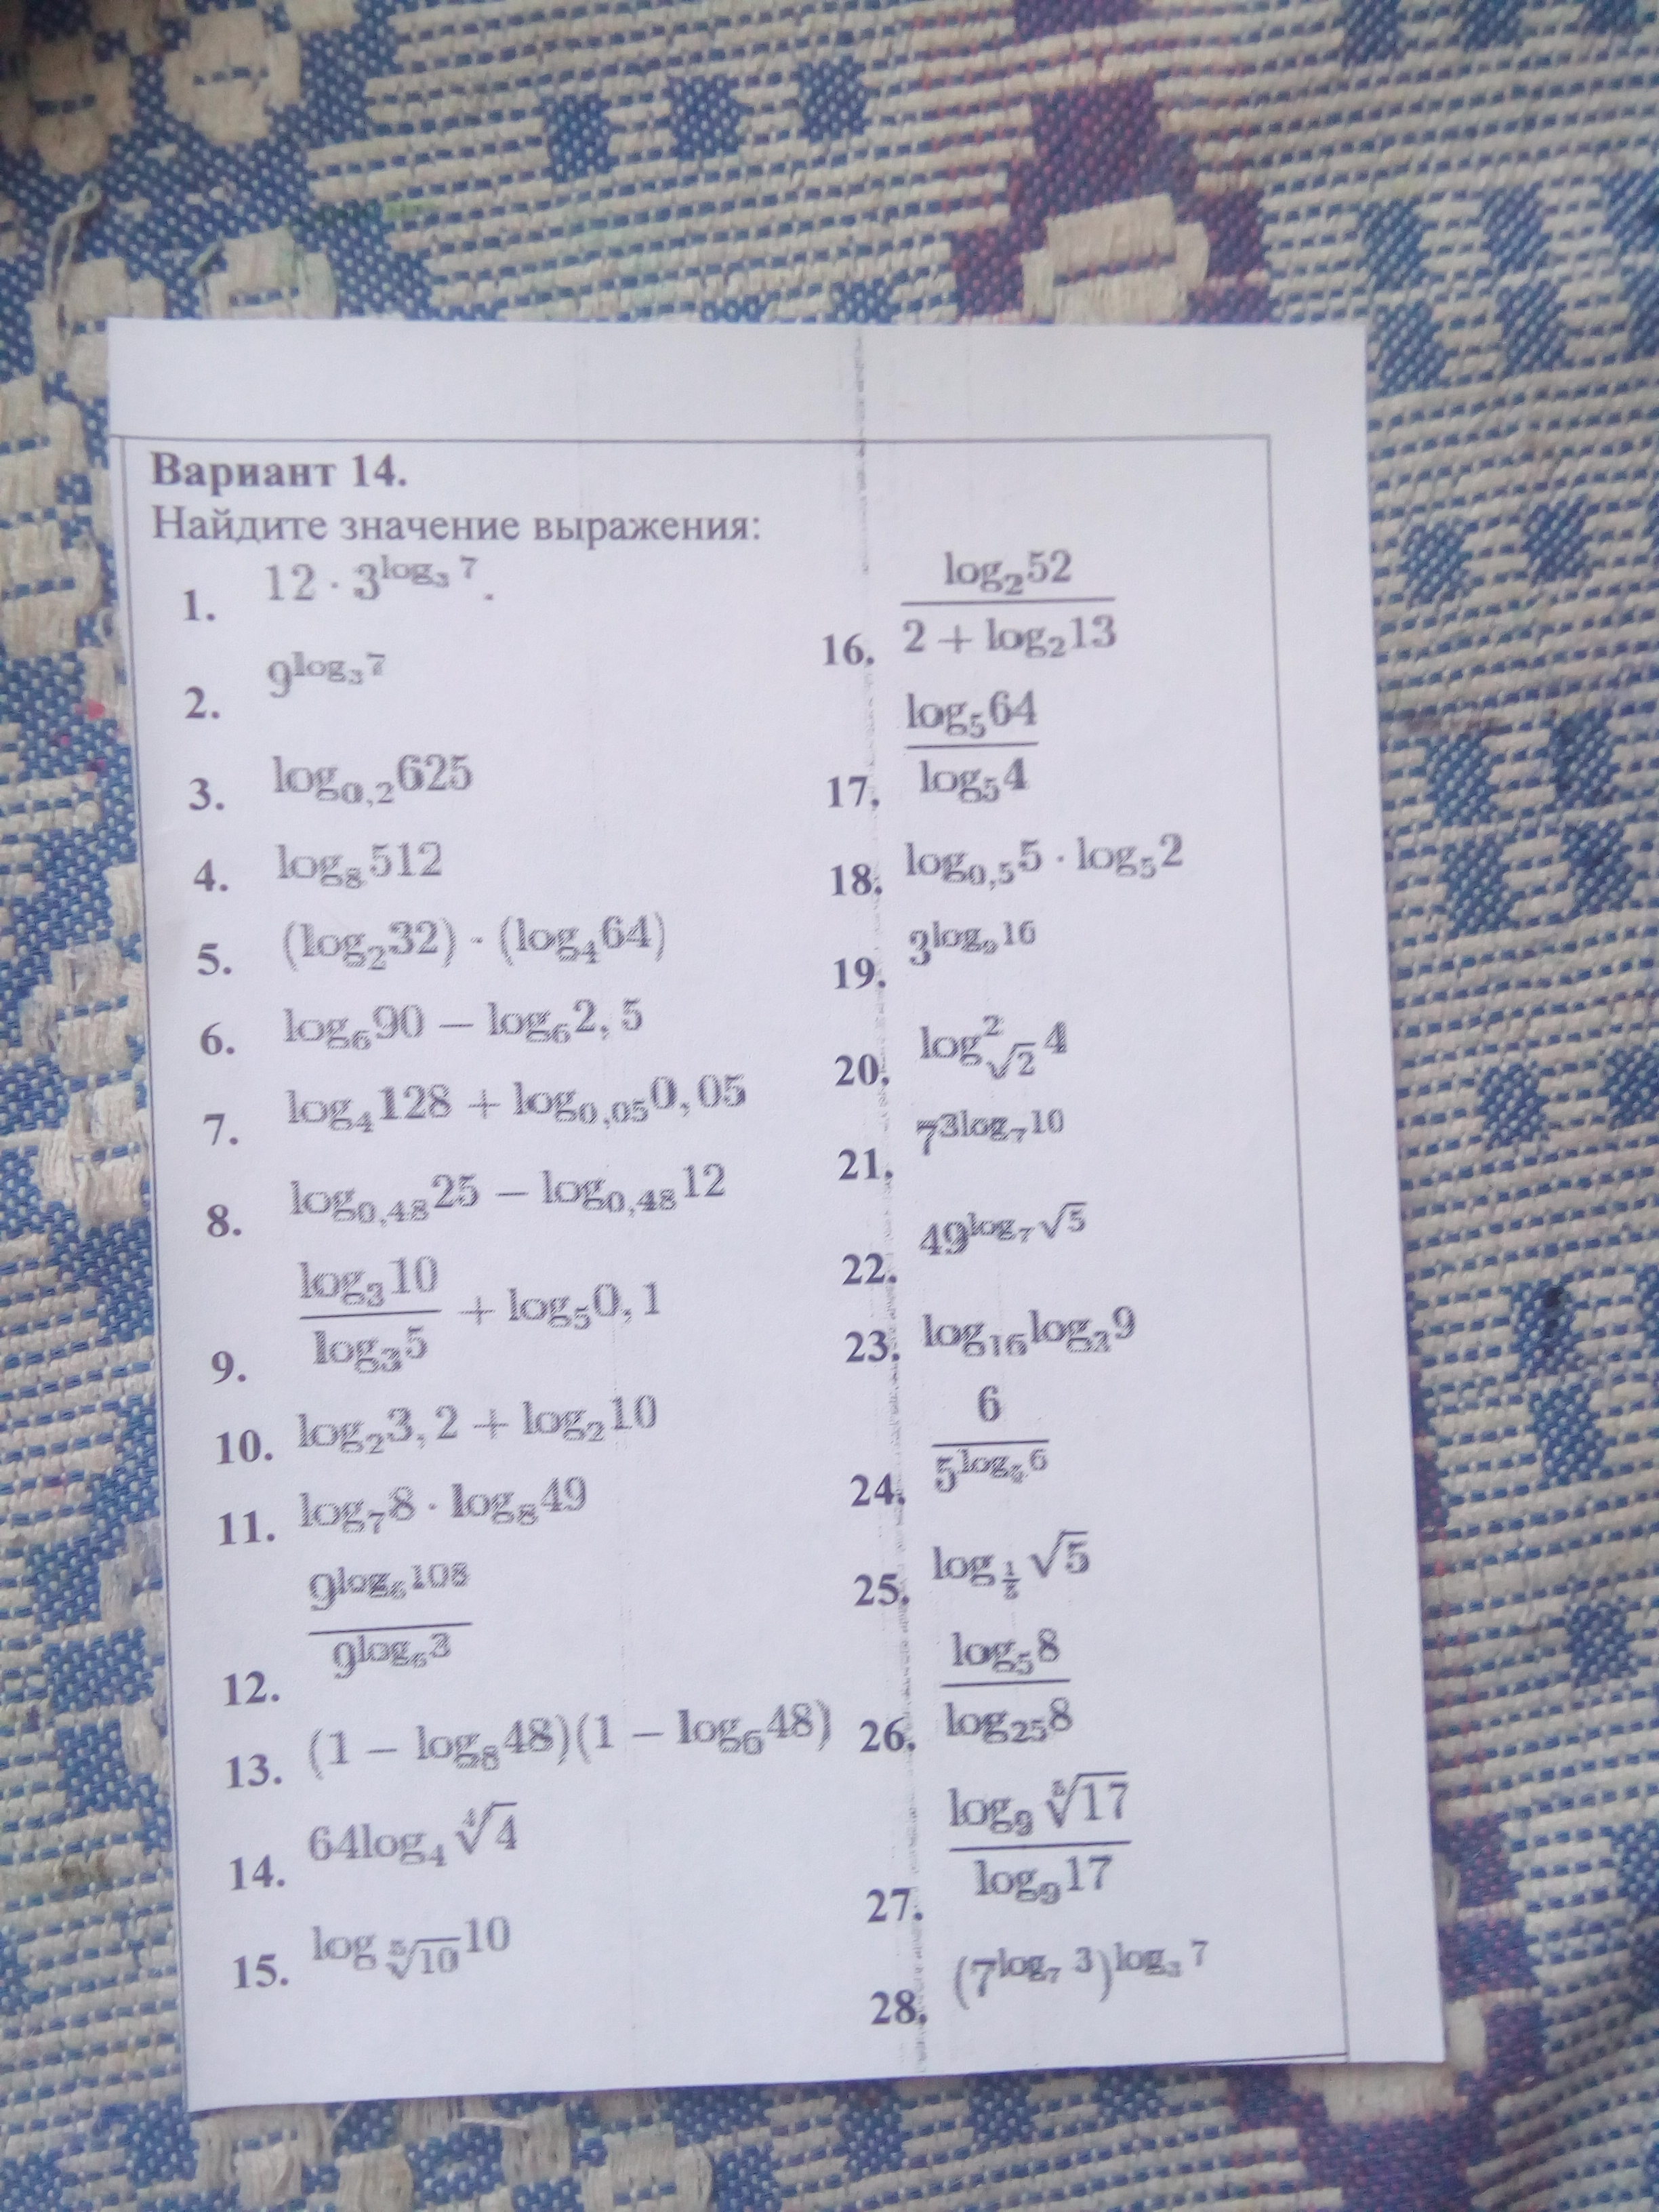 Вариант 14.
Найдите значение выражения:
1. 12 · 3^{log_3 7}.
2. 9^{log_3 7}
3. log_{0,2} 625
4. log_8 512
5. (log_2 32) · (log_4 64)
6. log_6 90 − log_6 2,5
7. log_4 128 + log_{0,05} 0,05
8. log_{0,48} 25 − log_{0,48} 12
9. \frac{log_3 10}{log_3 5} + log_5 0,1
10. log_2 3,2 + log_2 10
11. log_7 8 · log_8 49
12. \frac{9^{log_6 108}}{9^{log_6 3}}
13. (1 − log_8 48)(1 − log_6 48)
14. 64log_4 \sqrt[4]{4}
15. log_{\sqrt[5]{10}} 10
16. \frac{log_2 52}{2 + log_2 13}
17. \frac{log_5 64}{log_5 4}
18. log_{0,5} 5 · log_5 2
19. 3^{log_9 16}
20. log^2_{\sqrt{2}} 4
21. 7^{3log_7 10}
22. 49^{log_7 \sqrt{5}}
23. log_{16} log_3 9
24. \frac{6}{5^{log_5 6}}
25. log_{\frac{1}{5}} \sqrt{5}
26. \frac{log_5 8}{log_{25} 8}
27. \frac{log_9 \sqrt[8]{17}}{log_9 17}
28. (7^{log_7 3})^{log_3 7}